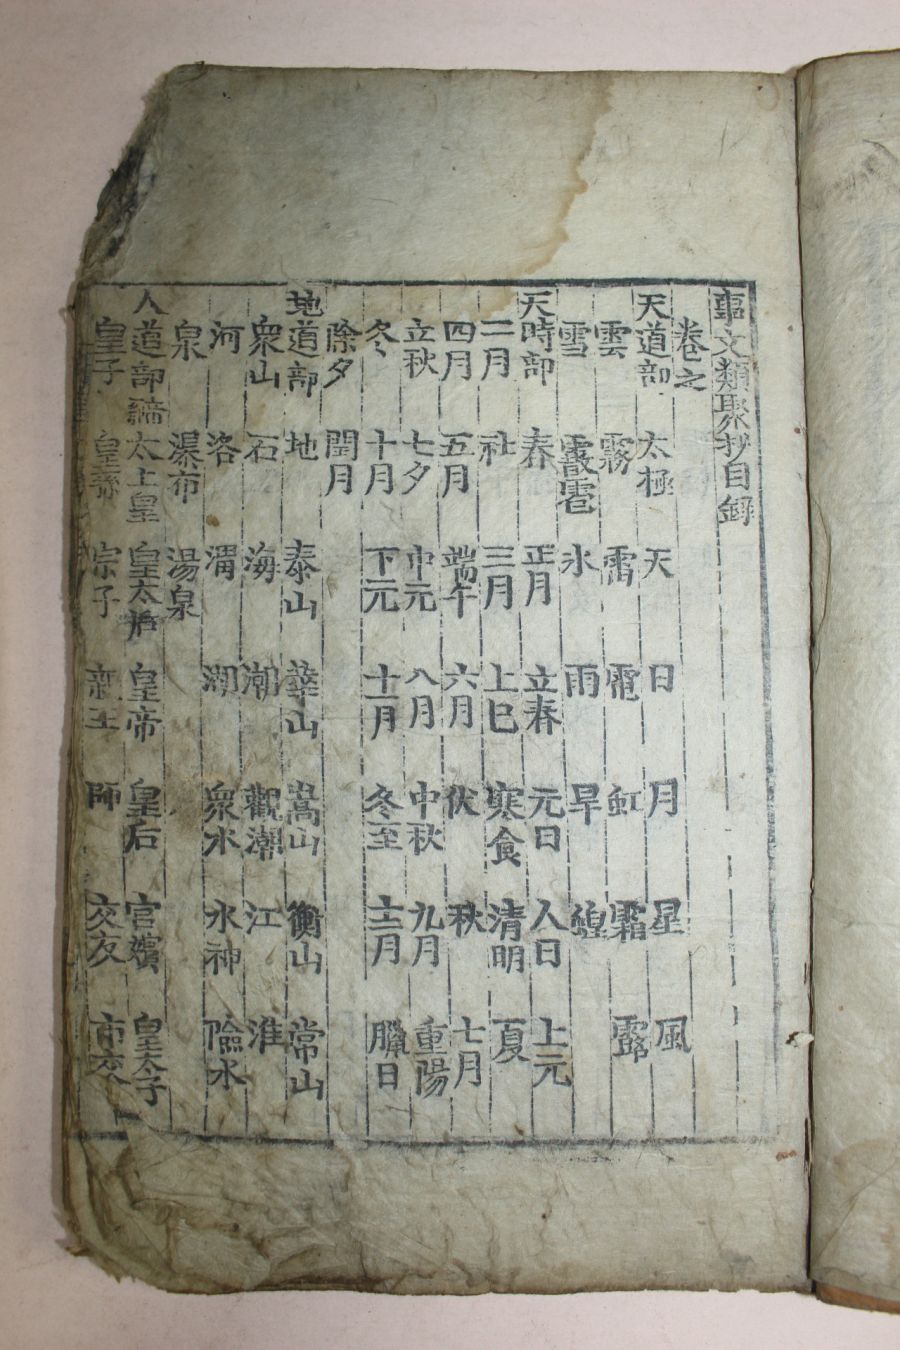 事文類聚抄目錄
卷之
天道部 太極 天 日 月 星 風
雲 霧 霄 電 虹 霜 露
雪 霰雹 氷 雨 旱 蝗
天時部 春 正月 立春 元日 人日 上元
二月 社 三月 上巳 寒食 清明 夏
四月 五月 端午 六月 伏 秋 七月
立秋 七夕 中元 八月 中秋 九月 重陽
冬 十月 下元 十一月 冬至 十二月 臘日
除夕 閏月
地道部 地 泰山 華山 嵩山 衡山 常山
衆山 石 海 潮 觀潮 江 淮
河 洛 渭 湖 衆水 水神 險水
泉 瀑布 湯泉
人道部 太上皇 皇太后 皇帝 皇后 宮嬪 皇太子
皇子 皇孫 宗子 親王 師 交友 市交